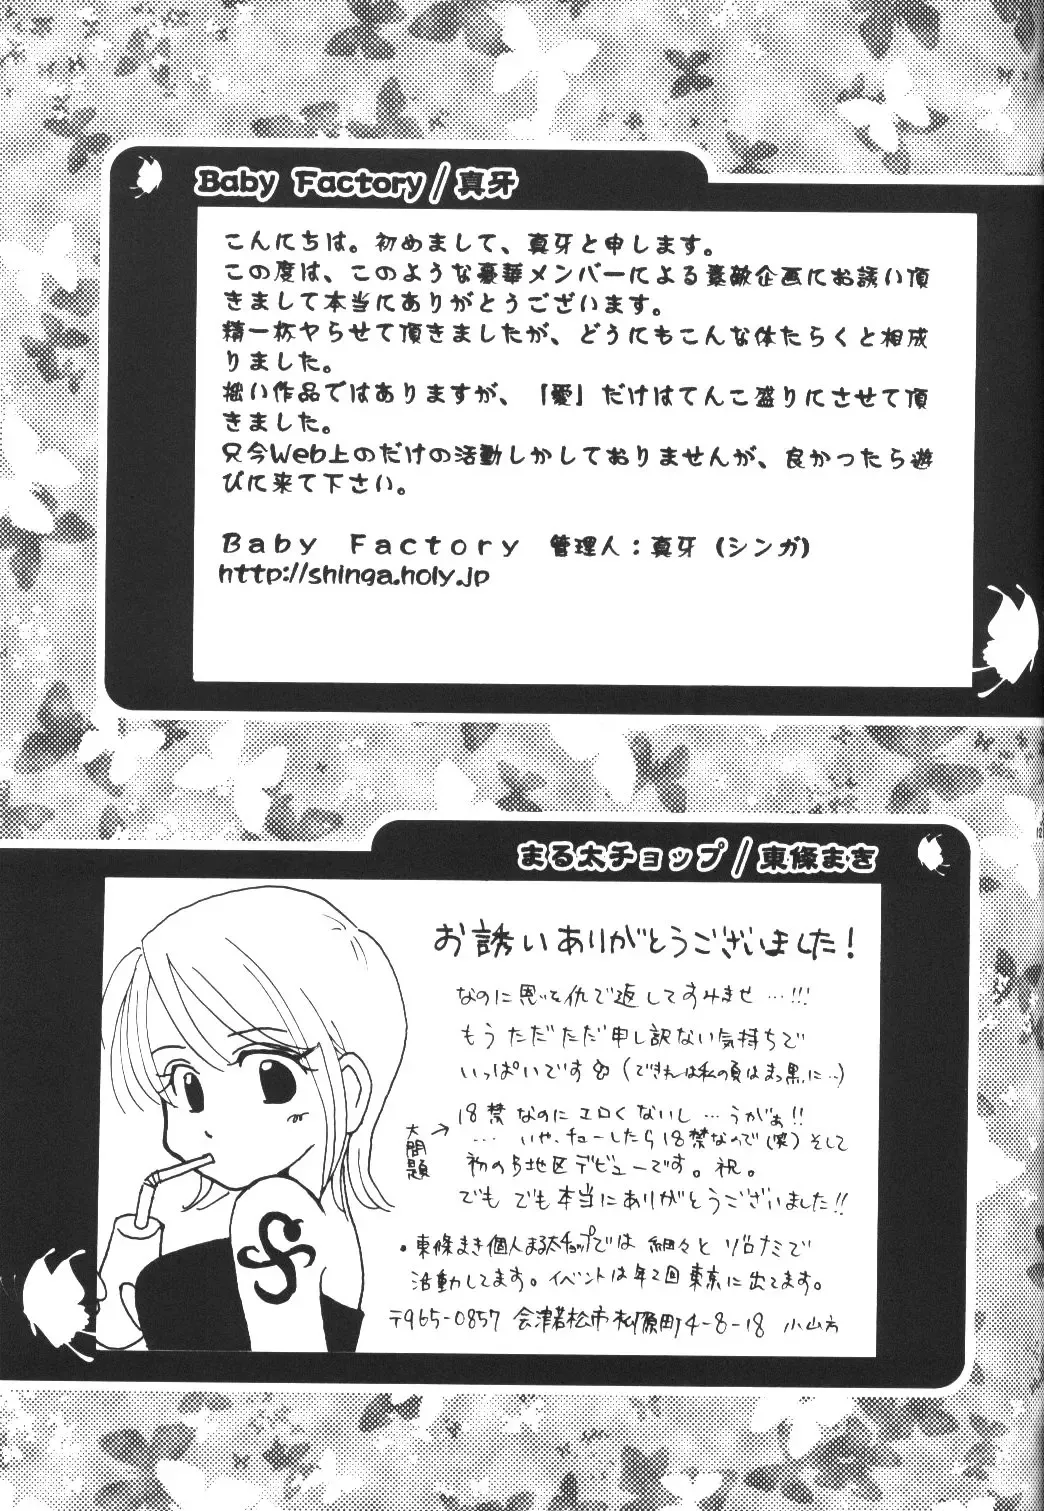 Baby Factory/真牙
こんにちは。初めまして、真牙と申します。
この度は、このような豪華メンバーによる素敵企画にお誘い頂
きまして本当にありがとうございます。
精一杯ヤらせて頂きましたが、どうにもこんな体たらくと相成
りました。
拙い作品ではありますが、「愛」だけはてんこ盛りにさせて頂
きました。
只今Web上のだけの活動しかしておりませんが、良かったら遊
びに来て下さい。
Baby Factory 管理人：真牙（シンガ）
http://shinga.holy.jp
まる太チョップ/東條まき
お誘いありがとうございました!
なのに恩を仇で返してすみませ…!!!
もうただただ申し訳ない気持ちで
いっぱいです (できれば私の頁はまっ黒に…)
大問題→
18禁なのにエロくないし…うがぁ!!
…いや、チューしたら18禁なので(笑)そして
初の5地区デビューです。祝。
でもでも本当にありがとうございました!!
・東條まき個人まる太チョップでは細々とゾロナミで
活動してます。イベントは年2回東京に出てます。
〒965-0857 会津若松市 町4-8-18 小山方